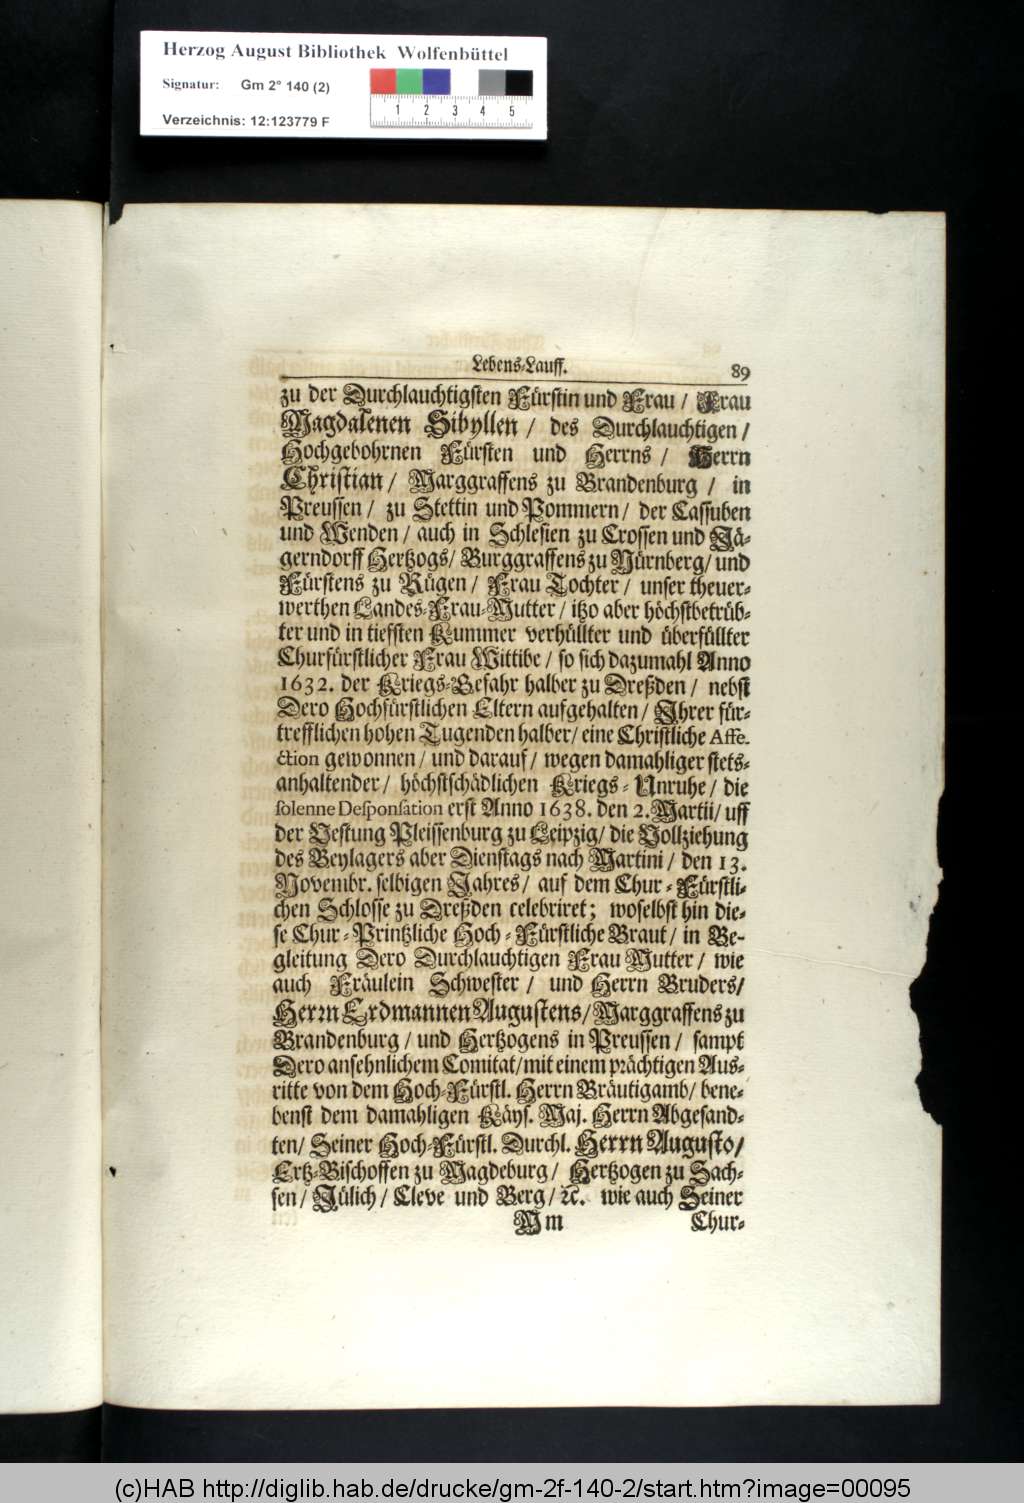 Herzog August Bibliothek Wolfenbüttel
Signatur: Gm 2° 140 (2)
Verzeichnis: 12:123779 F
1 2 3 4 5
Lebens-Lauff. 89
zu der Durchlauchtigsten Fürstin und Frau / Frau
Magdalenen Sibyllen / des Durchlauchtigen /
Hochgebohrnen Fürsten und Herrns / Herrn
Christian / Marggraffens zu Brandenburg / in
Preussen / zu Stettin und Pommern / der Cassuben
und Wenden / auch in Schlesien zu Crossen und Jä-
gerndorff Hertzogs / Burggraffens zu Nürnberg / und
Fürstens zu Rügen / Frau Tochter / unser theuer-
werthen Landes-Frau-Mutter / itzo aber höchstbetrüb-
ter und in tieffsten Kummer verhüllter und überfüllter
Churfürstlicher Frau Wittibe / so sich dazumahl Anno
1632. der Kriegs-Gefahr halber zu Dreßden / nebst
Dero Hochfürstlichen Eltern aufgehalten / Ihrer für-
trefflichen hohen Tugenden halber / eine Christliche Affe-
ction gewonnen / und darauf / wegen damahliger stets-
anhaltender / höchstschädlichen Kriegs-Unruhe / die
solenne Desponsation erst Anno 1638. den 2. Martii / uff
der Vestung Pleissenburg zu Leipzig / die Vollziehung
des Beylagers aber Dienstags nach Martini / den 13.
Novembr. selbigen Jahres / auf dem Chur-Fürstli-
chen Schlosse zu Dreßden celebriret; woselbst hin die-
se Chur-Printzliche Hoch-Fürstliche Braut / in Be-
gleitung Dero Durchlauchtigen Frau Mutter / wie
auch Fräulein Schwester / und Herrn Bruders /
Herrn Erdmannen Augustens / Marggraffens zu
Brandenburg / und Hertzogens in Preussen / sampt
Dero ansehnlichem Comitat / mit einem prächtigen Aus-
ritte von dem Hoch-Fürstl. Herrn Bräutigamb / bene-
benst dem damahligen Käys. Maj. Herrn Abgesand-
ten / Seiner Hoch-Fürstl. Durchl. Herrn Augusto /
Ertz-Bischoffen zu Magdeburg / Hertzogen zu Sach-
sen / Jülich / Cleve und Berg / ꝛc. wie auch Seiner
M m Chur-
(c)HAB http://diglib.hab.de/drucke/gm-2f-140-2/start.htm?image=00095